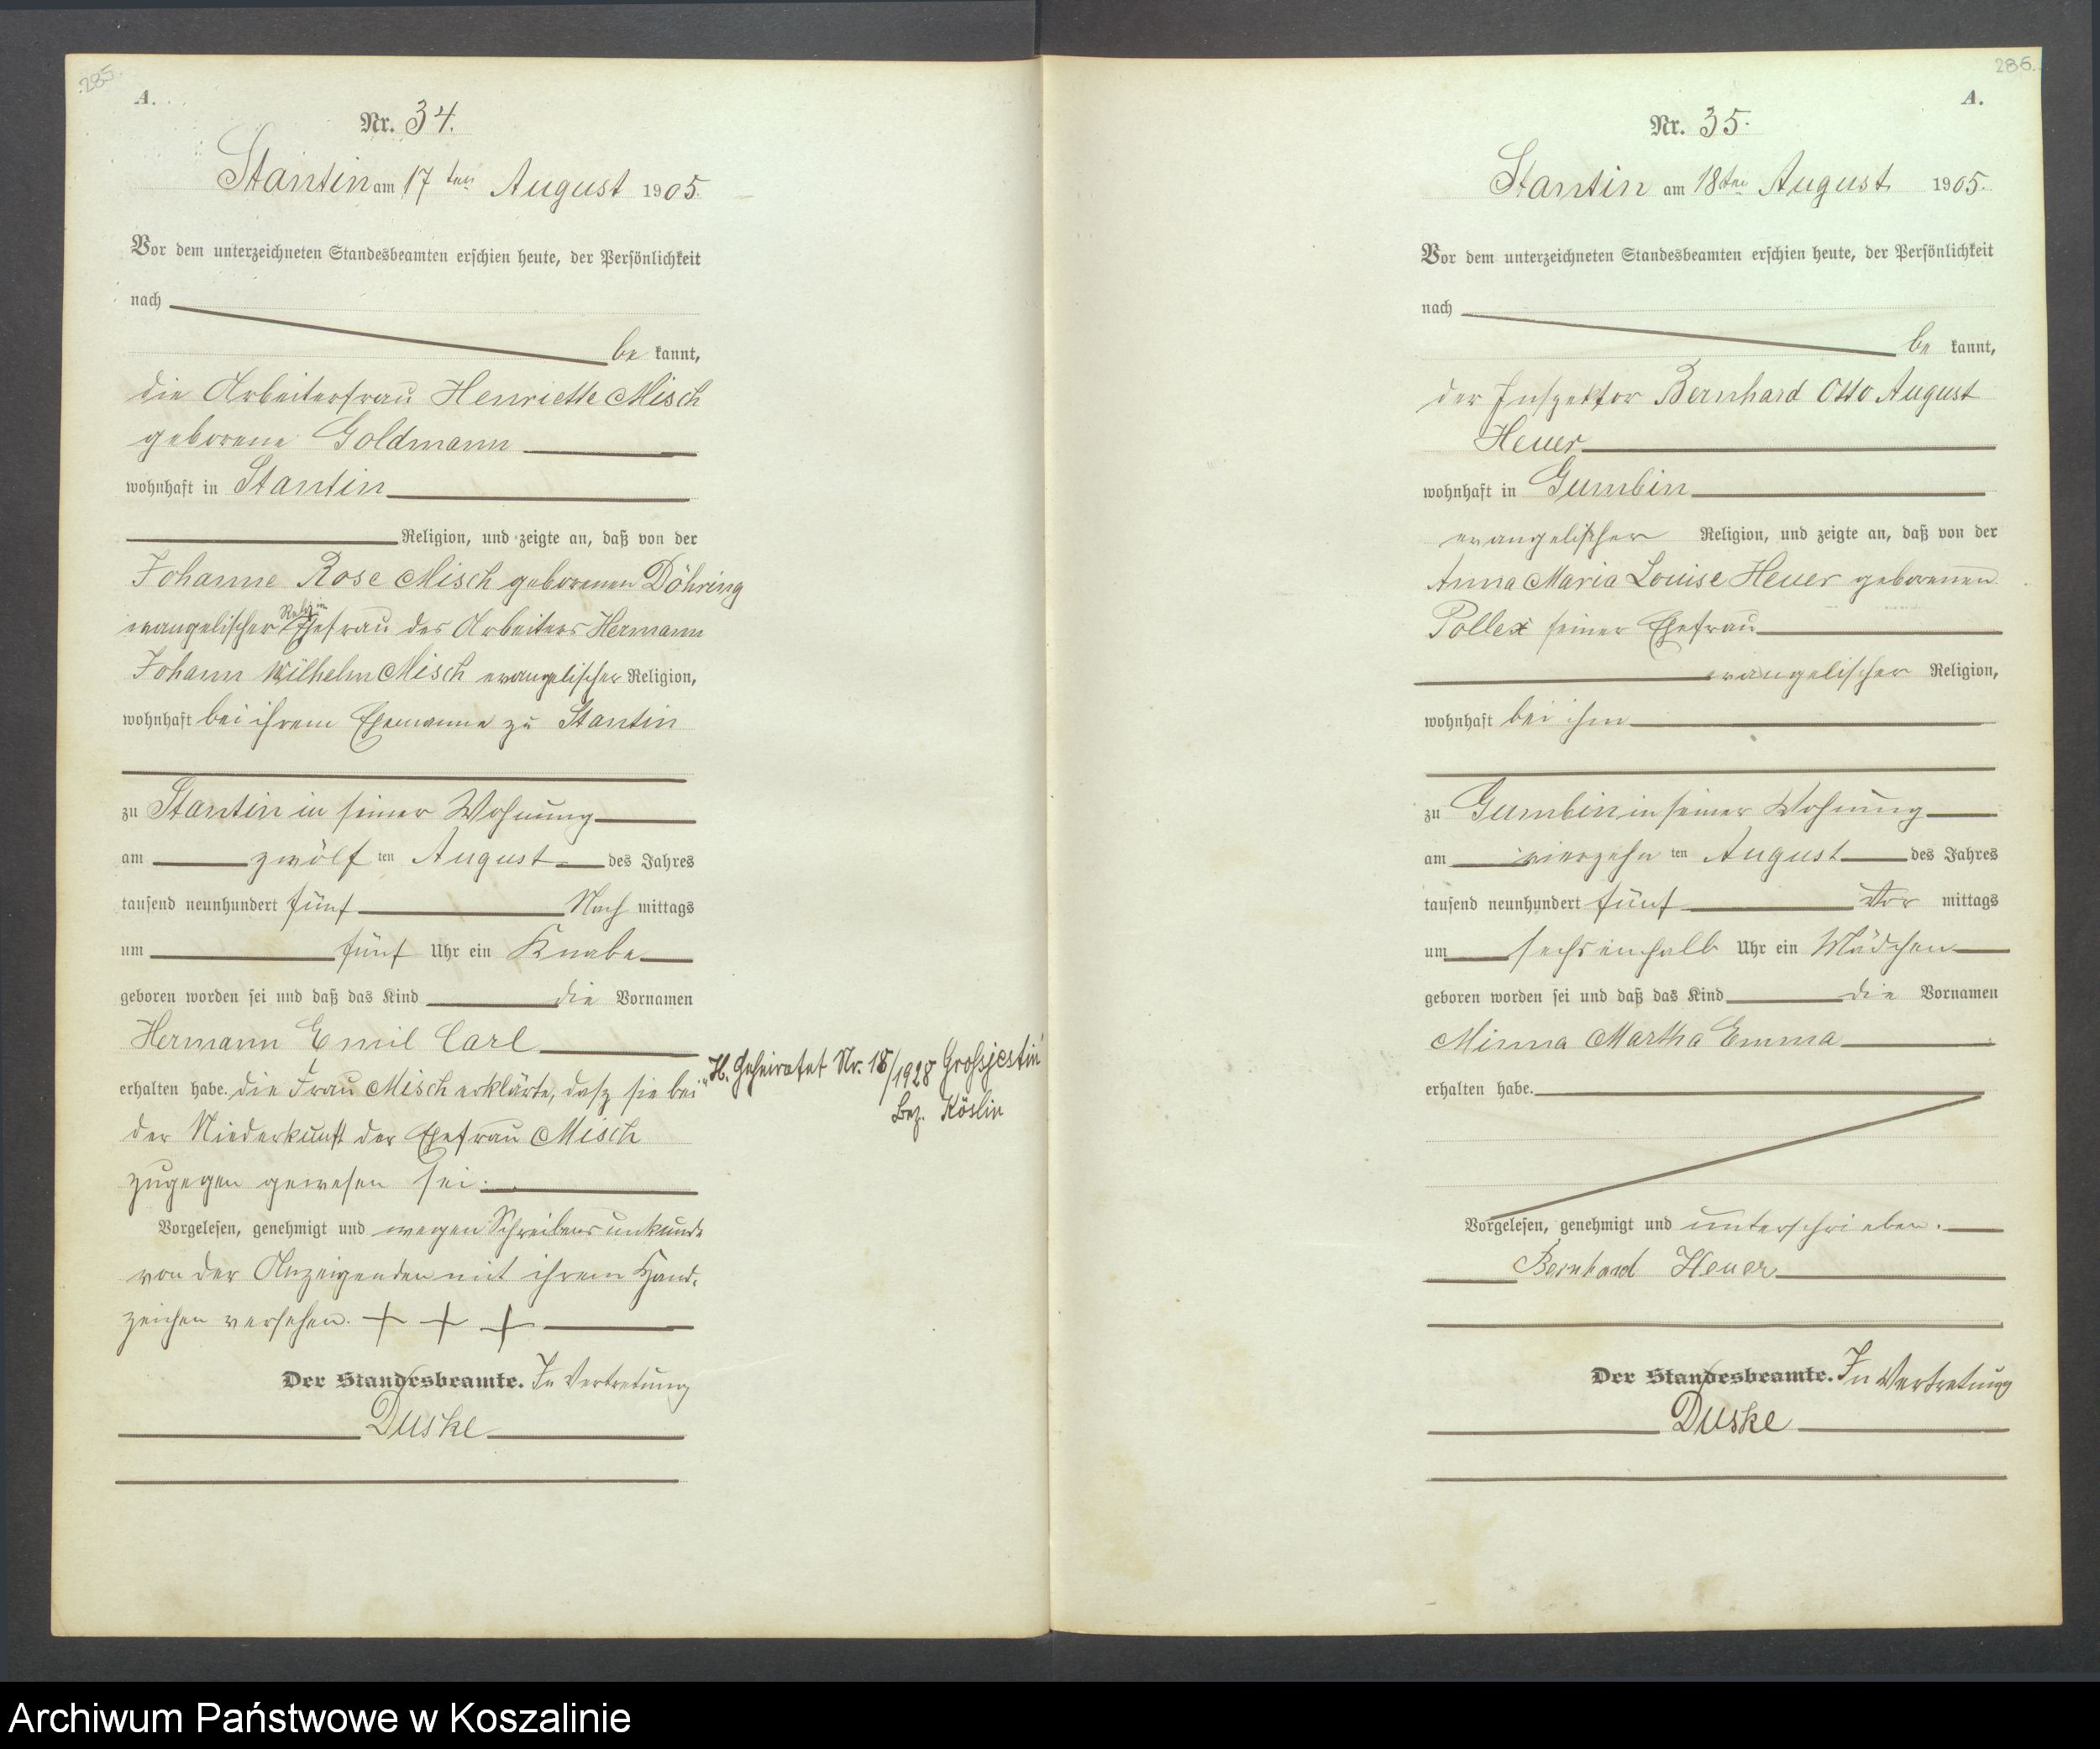 285.
A.
Nr. 34.
Stantin am 17ten August 1905.
Vor dem unterzeichneten Standesbeamten erschien heute, der Persönlichkeit
nach
be kannt,
die Arbeiterfrau Henriette Misch
geborene Goldmann
wohnhaft in Stantin
Religion, und zeigte an, daß von der
Johanne Rose Misch geborenen Döhring
Religion
evangelischer Ehefrau des Arbeiters Hermann
Johann Wilhelm Misch evangelischer Religion,
wohnhaft bei ihrem Ehemanne zu Stantin
zu Stantin in seiner Wohnung
am zwölf ten August des Jahres
tausend neunhundert fünf Nach mittags
um fünf Uhr ein Knabe
geboren worden sei und daß das Kind die Vornamen
Hermann Emil Carl
erhalten habe. die Frau Misch erklärte, dasz sie bei
der Niederkunft der Ehefrau Misch
zugegen gewesen sei.
Vorgelesen, genehmigt und wegen Schreibensunkunde
von der Anzeigenden mit ihrem Hand-
zeichen versehen. + + +
Der Standesbeamte. In Vertretung
Duske
"H. Geheiratet Nr. 18/1928 Großjestin
Bez. Köslin
286.
A.
Nr. 35.
Stantin am 18ten August 1905.
Vor dem unterzeichneten Standesbeamten erschien heute, der Persönlichkeit
nach
be kannt,
der Inspektor Bernhard Otto August
Heuer
wohnhaft in Gumbin
evangelischer Religion, und zeigte an, daß von der
Anna Maria Louise Heuer geborenen
Pollex seiner Ehefrau
evangelischer Religion,
wohnhaft bei ihm
zu Gumbin in seiner Wohnung
am vierzehn ten August des Jahres
tausend neunhundert fünf Vor mittags
um sechseinhalb Uhr ein Mädchen
geboren worden sei und daß das Kind die Vornamen
Minna Martha Emma
erhalten habe.
Vorgelesen, genehmigt und unterschrieben.
Bernhard Heuer
Der Standesbeamte. In Vertretung
Duske
Archiwum Państwowe w Koszalinie